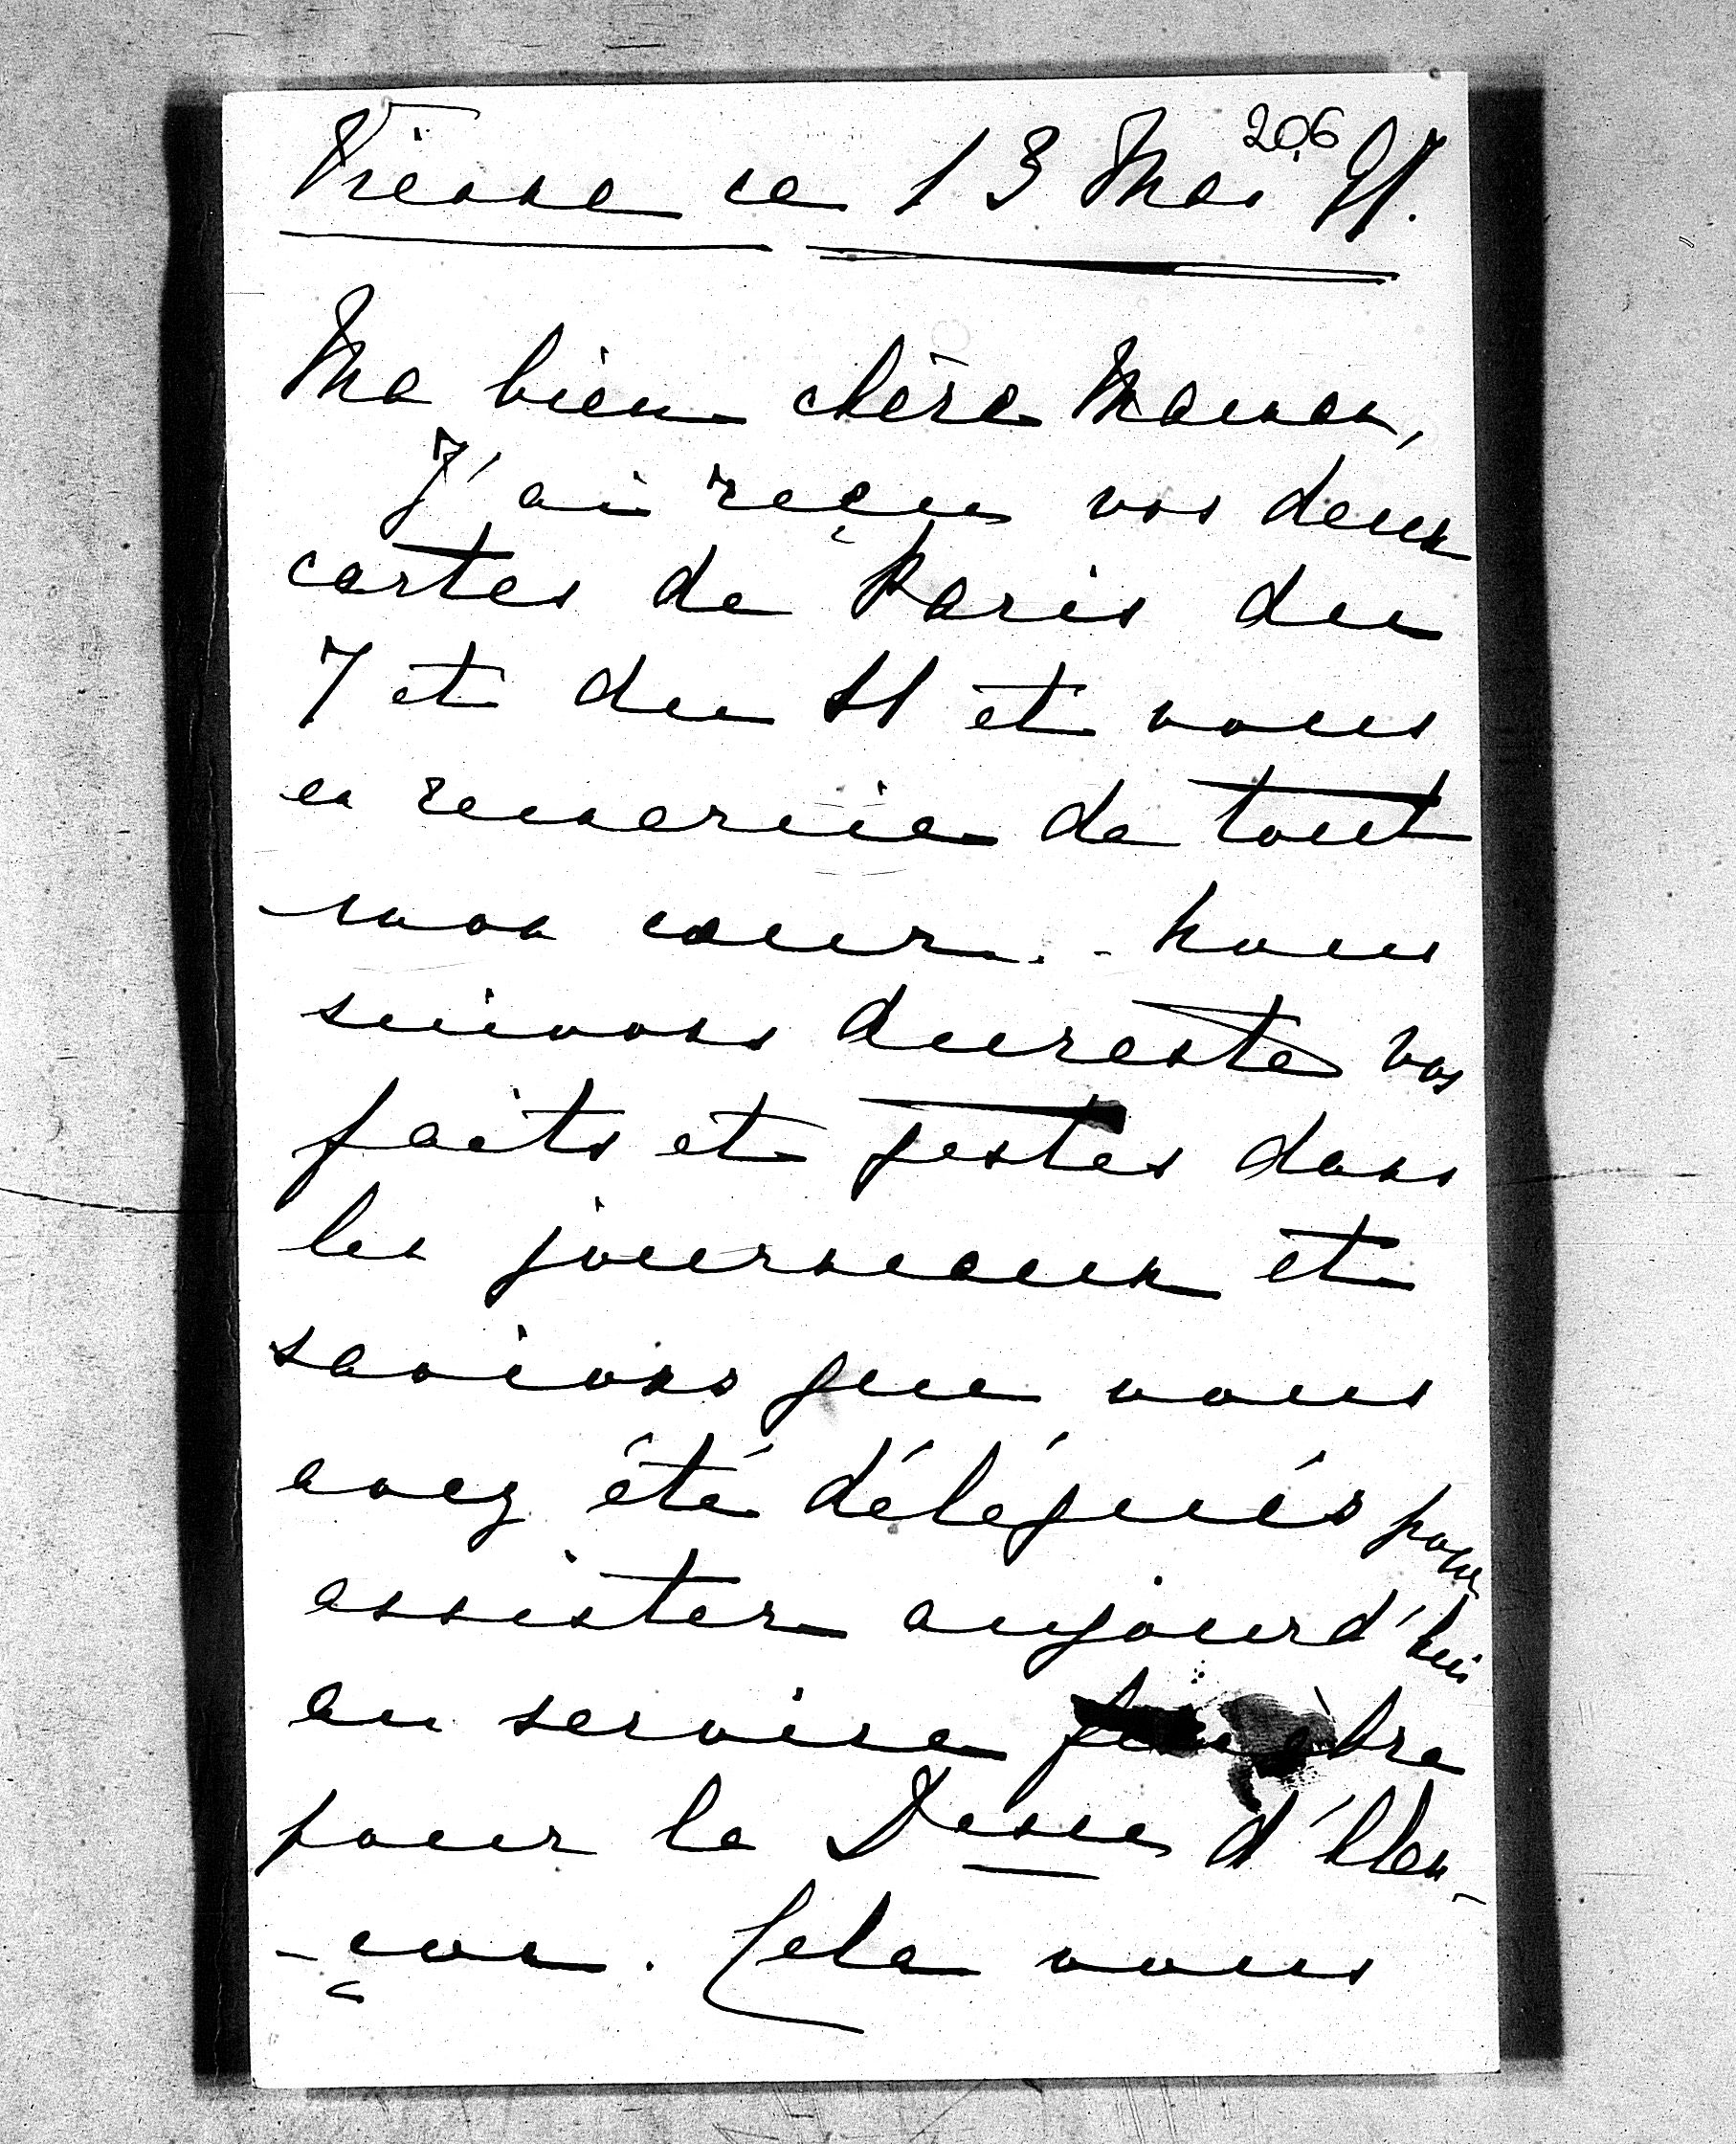 206
Vienne ce 13 Mai 97.
Ma bien chère Maman,
J'ai reçu vos deux
cartes de Paris du
7 et du 11 et vous
en remercie de tout
mon cœur. - Nous
suivons dureste vos
faits et gestes dans
les journaux et
savions que vous
avez été délégués pour
assister aujourd'hui
au service funèbre
pour la Desse d'Alen-
-çon. Cela vous